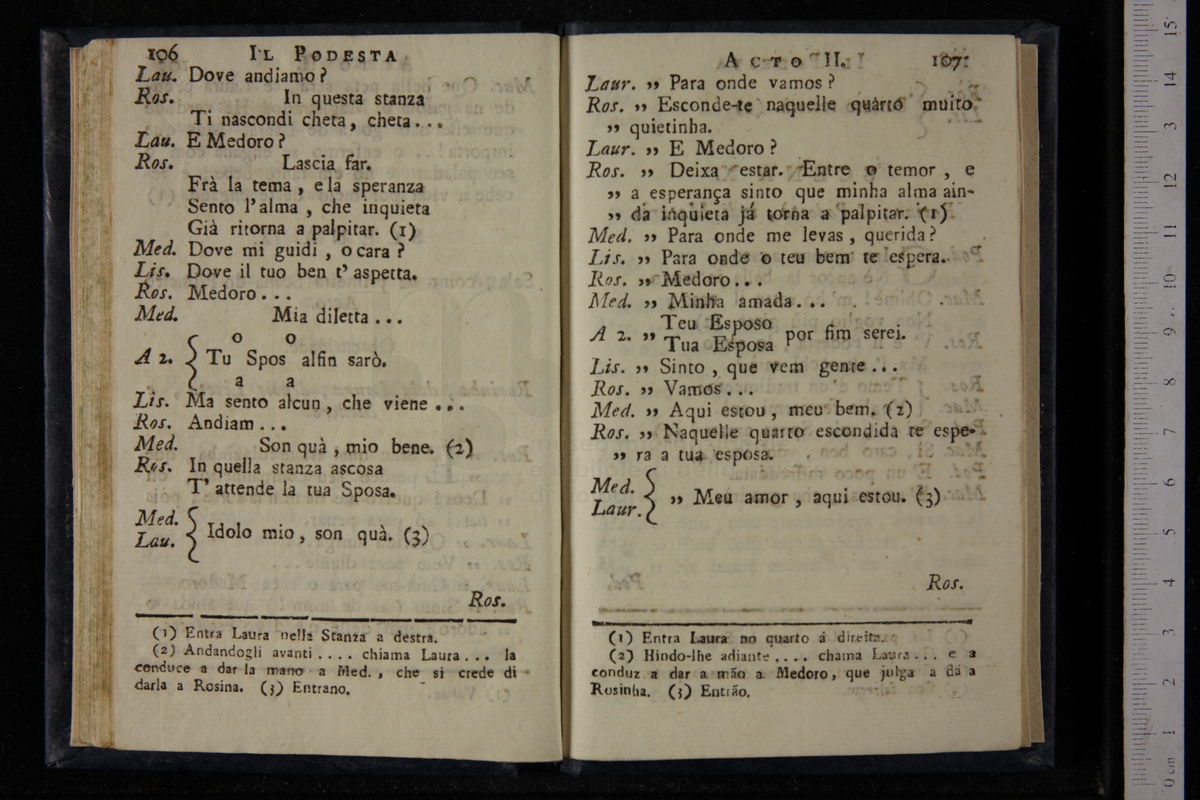 106 IL PODESTA
Lau. Dove andiamo?
Ros. In questa stanza
Ti nascondi cheta, cheta...
Lau. E Medoro?
Ros. Lascia far.
Frà la tema, e la speranza
Sento l'alma, che inquieta
Già ritorna a palpitar. (1)
Med. Dove mi guidi, o cara?
Lis. Dove il tuo ben t'aspetta.
Ros. Medoro...
Med. Mia diletta...
o o
A 2. { Tu Spos alfin sarò.
a a
Lis. Ma sento alcun, che viene...
Ros. Andiam...
Med. Son quà, mio bene. (2)
Ros. In quella stanza ascosa
T'attende la tua Sposa.
Med.
Lau. { Idolo mio, son quà. (3)
Ros.
(1) Entra Laura nella Stanza a destra.
(2) Andandogli avanti.... chiama Laura... la
conduce a dar la mano a Med., che si crede di
darla a Rosina. (3) Entrano.
ACTO II. 107
Laur. „ Para onde vamos?
Ros. „ Esconde-te naquelle quárto muito
„ quietinha.
Laur. „ E Medoro?
Ros. „ Deixa estar. Entre o temor, e
„ a esperança sinto que minha alma ain-
„ da inquieta já torna a palpitar. (1)
Med. „ Para onde me levas, querida?
Lis. „ Para onde o teu bem te espera.
Ros. „ Medoro...
Med. „ Minha amada...
A 2. „ Teu Esposo
Tua Esposa por fim serei.
Lis. „ Sinto, que vem gente...
Ros. „ Vamos...
Med. „ Aqui estou, meu bem. (2)
Ros. „ Naquelle quarto escondida te espe-
„ ra a tua esposa.
Med.
Laur. { „ Meu amor, aqui estou. (3)
Ros.
(1) Entra Laura no quarto á direita.
(2) Hindo-lhe adiante.... chama Laura... e a
conduz a dar a mão a Medoro, que julga a dá a
Rosinha. (3) Entrão.
0 cm 1 2 3 4 5 6 7 8 9 10 11 12 13 14 15